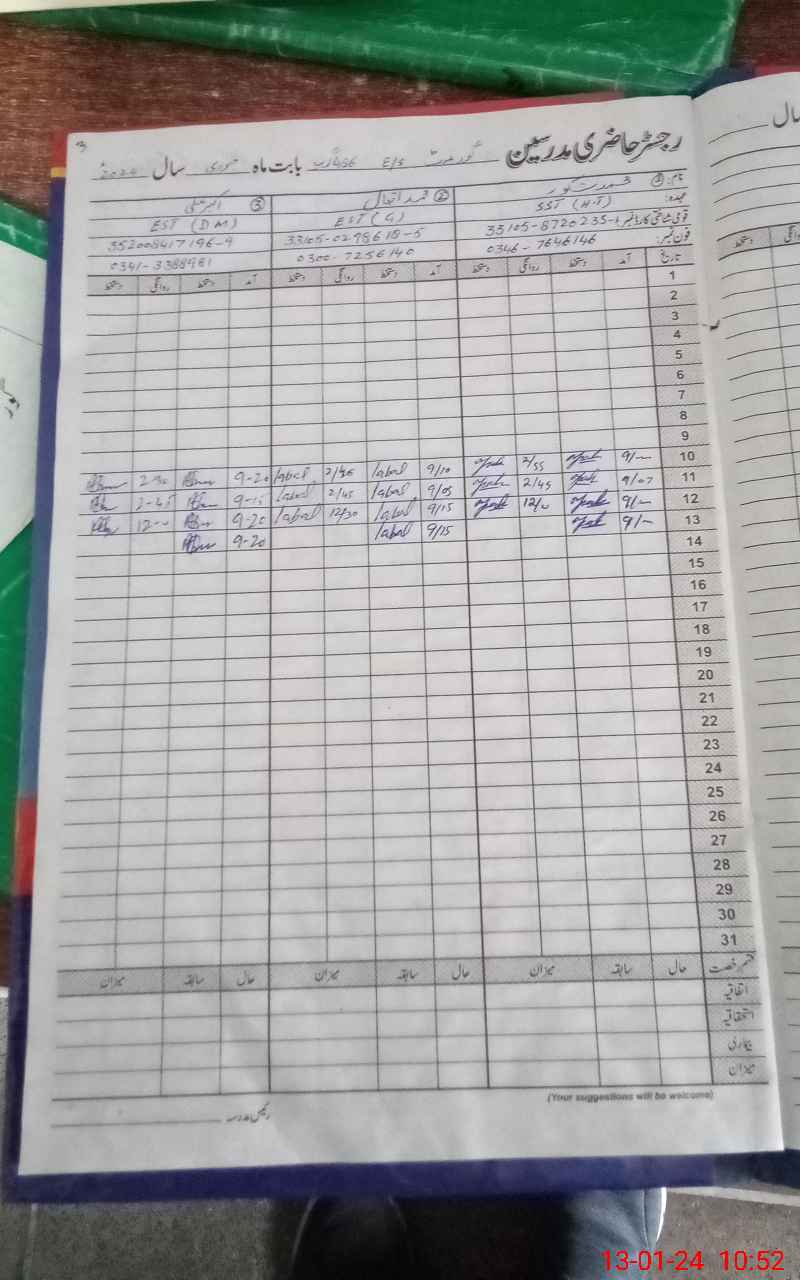 3
رجسٹر حاضری مدرسین گورنمنٹ E/S 456 گ ب بابت ماہ جنوری سال 2024ء
نام: ① ② محمد اقبال ③ اکبر علی
عہدہ: SST (H-T) EST (G) EST (DM)
قومی شناختی کارڈ نمبر 33105-8720235-1 33105-0298618-5 352008417196-9
فون نمبر: 0346-7646146 0300-7256140 0341-3388981
تاریخ آمد دستخط روانگی دستخط آمد دستخط روانگی دستخط آمد دستخط روانگی دستخط
1
2
3
4
5
6
7
8
9
10 9/— 2/55 9/10 Iqbal 2/45 Iqbal 9-20
11 9/07 2/45 9/05 Iqbal 2/45 Iqbal 9-15 2-45
12 9/— 12/— 9/15 Iqbal 12/30 Iqbal 9-20 12-—
13 9/— 9/15 Iqbal 9-20
14
15
16
17
18
19
20
21
22
23
24
25
26
27
28
29
30
31
قسم رخصت حال سابقہ میزان حال سابقہ میزان حال سابقہ میزان
اتفاقیہ
استحقاقیہ
بیماری
میزان
(Your suggestions will be welcome)
رئیس مدرسہ
سال
روانگی دستخط
13-01-24 10:52